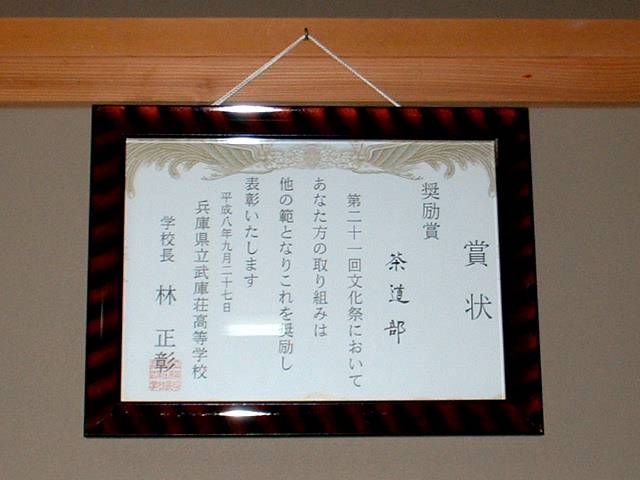 賞状
奨励賞
茶道部
第二十一回文化祭において
あなた方の取り組みは
他の範となりこれを奨励し
表彰いたします
平成八年九月二十七日
兵庫県立武庫荘高等学校
学校長 林 正彰